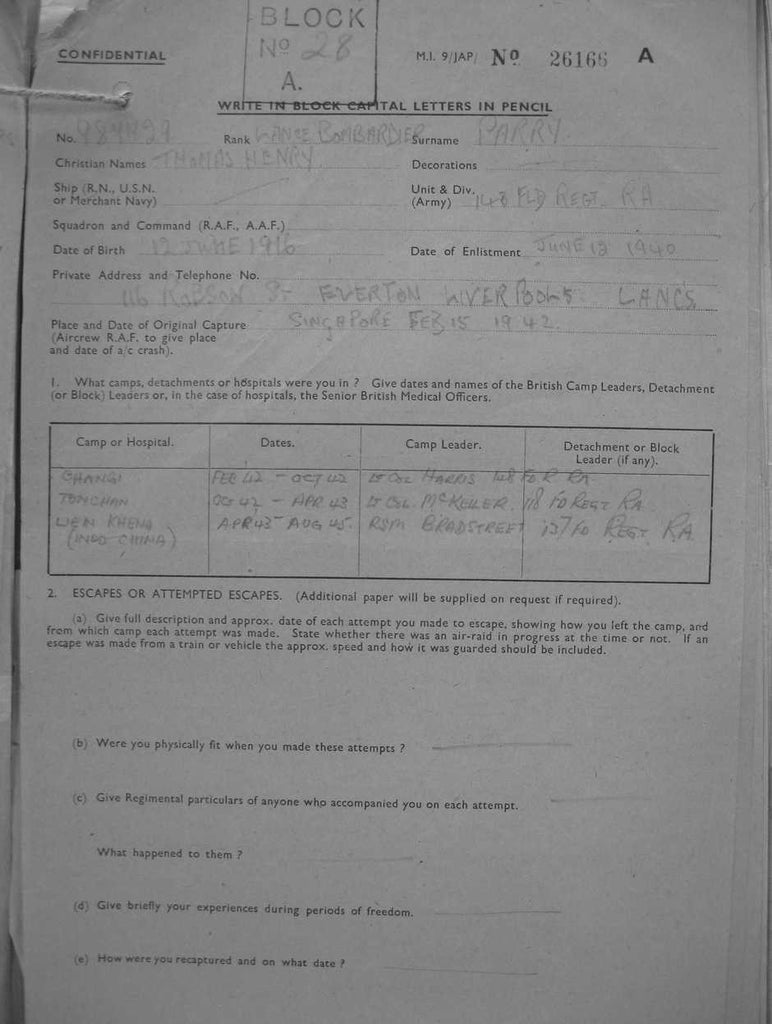 BLOCK
Nº 28
A.
CONFIDENTIAL
M.I. 9/JAP/ Nº 26166 A
WRITE IN BLOCK CAPITAL LETTERS IN PENCIL
No. Rank LANCE BOMBARDIER Surname PARRY
Christian Names THOMAS HENRY Decorations
Ship (R.N., U.S.N. or Merchant Navy) Unit & Div. (Army) 148 FLD REGT. RA
Squadron and Command (R.A.F., A.A.F.)
Date of Birth 12 JUNE 1916 Date of Enlistment JUNE 13 1940
Private Address and Telephone No.
116 ROBSON ST EVERTON LIVERPOOL 5 LANCS
Place and Date of Original Capture SINGAPORE FEB 15 1942.
(Aircrew R.A.F. to give place
and date of a/c crash).
1. What camps, detachments or hospitals were you in ? Give dates and names of the British Camp Leaders, Detachment
(or Block) Leaders or, in the case of hospitals, the Senior British Medical Officers.
Camp or Hospital. Dates. Camp Leader. Detachment or Block Leader (if any).
CHANGI FEB 42 - OCT 42 LT COL HARRIS 148 FD R RA
TONCHAN OCT 42 - APR 43 LT COL McKELLER. 118 FD REGT RA
UEN KHENA APR 43 - AUG 45. RSM BRADSTREET 137 FD REGT RA
(INDO CHINA)
2. ESCAPES OR ATTEMPTED ESCAPES. (Additional paper will be supplied on request if required).
(a) Give full description and approx. date of each attempt you made to escape, showing how you left the camp, and
from which camp each attempt was made. State whether there was an air-raid in progress at the time or not. If an
escape was made from a train or vehicle the approx. speed and how it was guarded should be included.
(b) Were you physically fit when you made these attempts ?
(c) Give Regimental particulars of anyone who accompanied you on each attempt.
What happened to them ?
(d) Give briefly your experiences during periods of freedom.
(e) How were you recaptured and on what date ?